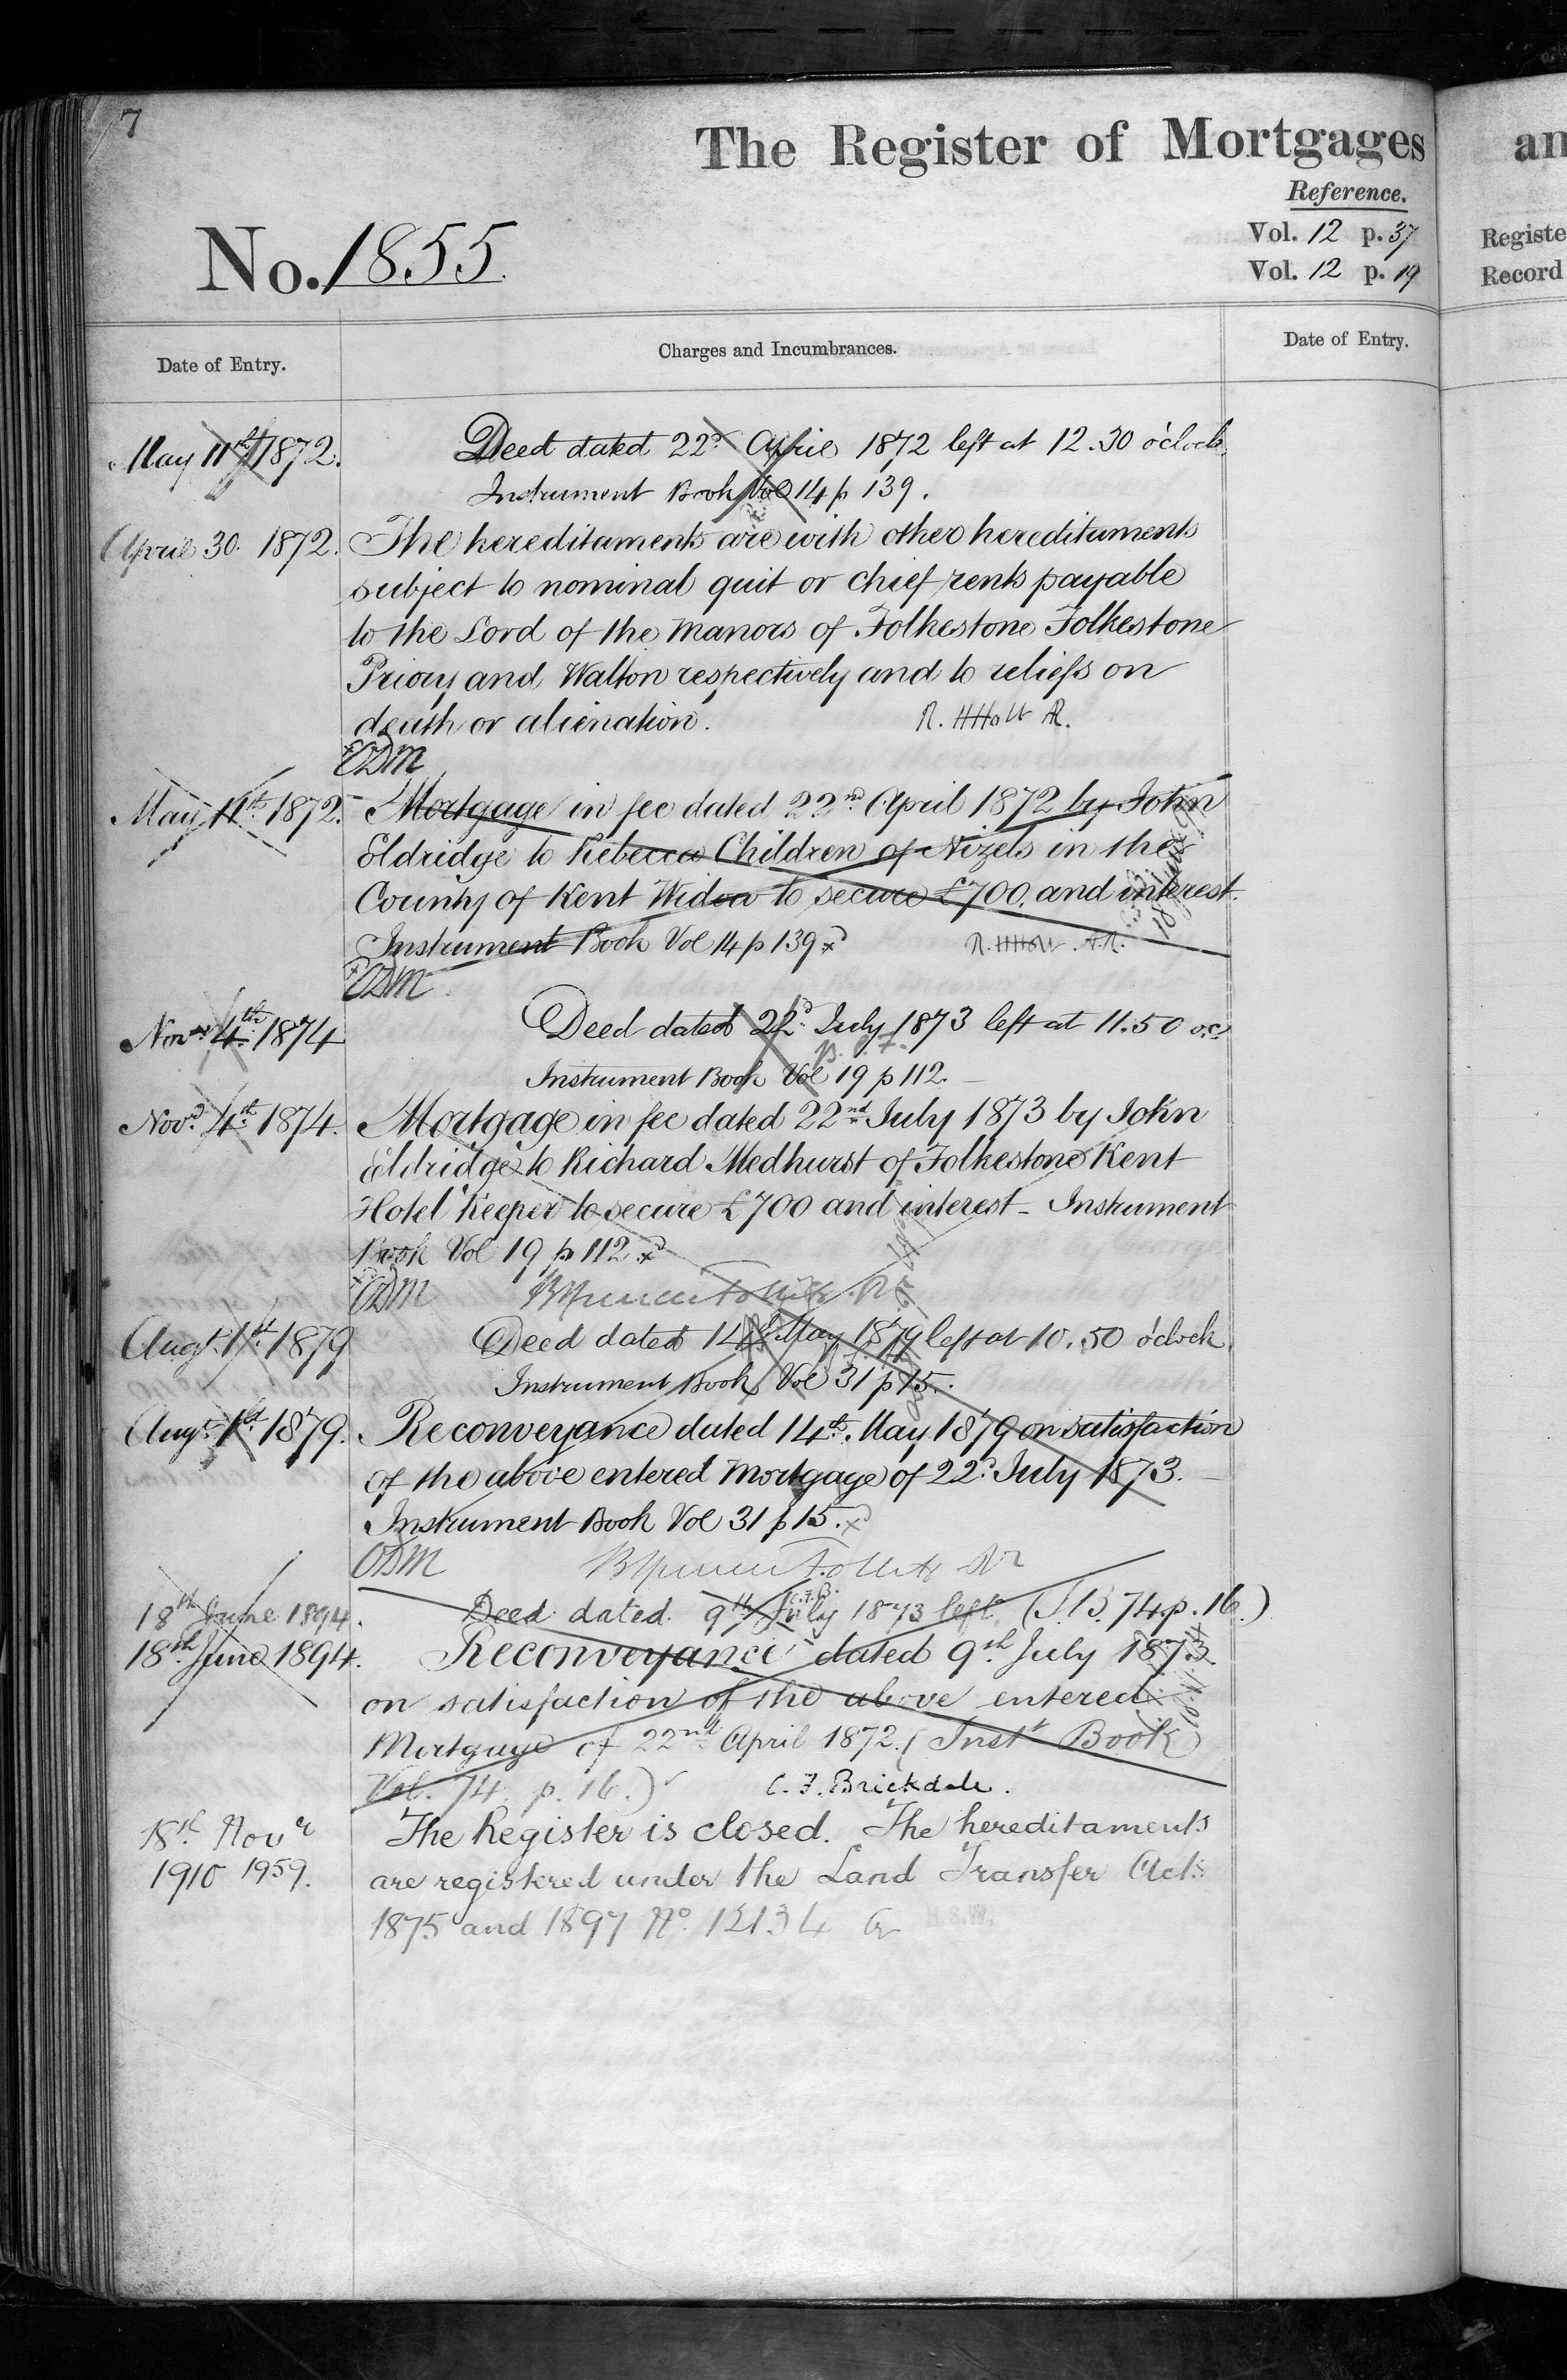 7
The Register of Mortgages
Reference.
No. 1855.
Vol. 12 p. 37
Vol. 12 p. 19
Date of Entry.
Charges and Incumbrances.
Date of Entry.
May 11th 1872. Deed dated 22d April 1872 left at 12.30 o'clock
Instrument Book Vol 14 p 139.
April 30. 1872. The hereditaments are with other hereditaments
subject to nominal quit or chief rents payable
to the Lord of the Manors of Folkestone Folkestone
Priory and Walton respectively and to reliefs on
death or alienation. R. H Holt AR.
May 11th 1872. Mortgage in fee dated 22nd April 1872 by John
Eldridge to Rebecca Children of Nizels in the
County of Kent Widow to secure £700. and interest.
Instrument Book Vol 14 p 139 R. H Holt A.R.
Novr 4th 1874 Deed dated 22d July 1873 left at 11.50 o.c.
Instrument Book Vol 19 p 112.
Novr 4th 1874. Mortgage in fee dated 22nd July 1873 by John
Eldridge to Richard Medhurst of Folkestone Kent
Hotel Keeper to secure £700 and interest - Instrument
Book Vol 19 p 112
Augt. 1st 1879 Deed dated 14th May 1879 left at 10.50 o'clock.
Instrument Book Vol 31 p 15.
Augt. 1st 1879. Reconveyance dated 14th. May 1879 on satisfaction
of the above entered Mortgage of 22d July 1873.
Instrument Book Vol 31 p 15.
18th June 1894. Deed dated 9th July 1873 left (I.B. 74 p. 16.)
C.F.B.
18th June 1894. Reconveyance dated 9th July 1873
on satisfaction of the above entered
Mortgage of 22nd April 1872. (Inst Book
Vol. 74. p. 16.) C. F. Brickdale.
18th Novr The Register is closed. The hereditaments
1910 1959. are registered under the Land Transfer Acts
1875 and 1897 No.
an
Registe
Record